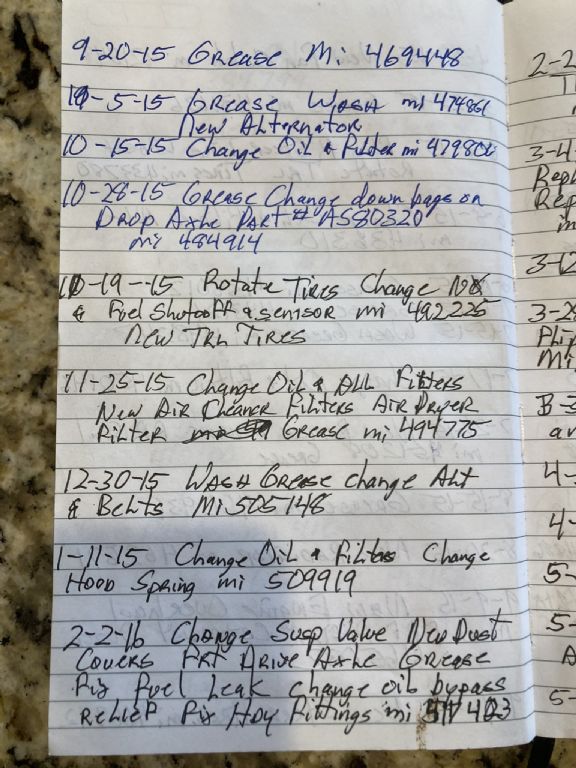 9-20-15 Grease Mi 469448
10-5-15 Grease Wash mi 474861
New Alternator
10-15-15 Change Oil & Filter mi 479806
10-28-15 Grease Change down bags on
Drop Axle Part # AS80320
mi 484914
-19-15 Rotate Tires Change NOX
& Fuel Shutoff & sensor mi 492225
New TRL Tires
11-25-15 Change Oil & ALL Filters
New Air Cleaner Filters Air Dryer
Filter Grease mi 494775
12-30-15 Wash Grease change Alt
& Belts Mi 505148
1-11-15 Change Oil & Filters Change
Hood Spring mi 509919
2-2-16 Change Susp Valve New Dust
Covers FRT Drive Axle Grease
Fix fuel Leak change oil bypass
Relief Fix Hdy Fittings mi
2-2
3-4-
Repl
Rep
3-12
3-2
Mi
4-
4-
5-
5-
5-